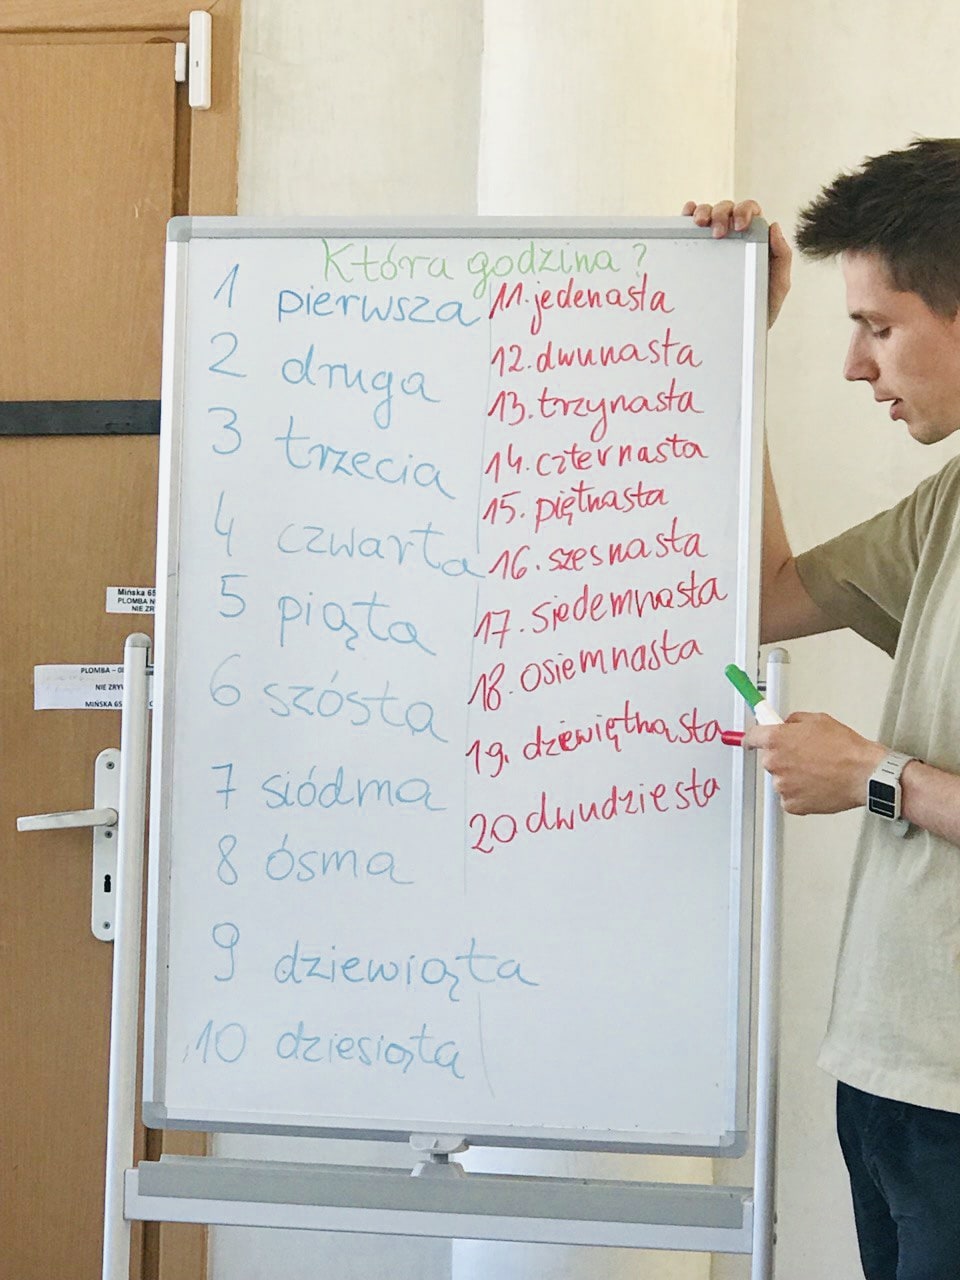 Która godzina?
1 pierwsza
2 druga
3 trzecia
4 czwarta
5 piąta
6 szósta
7 siódma
8 ósma
9 dziewiąta
10 dziesiąta
11. jedenasta
12. dwunasta
13. trzynasta
14. czternasta
15. piętnasta
16. szesnasta
17. siedemnasta
18. osiemnasta
19. dziewiętnasta
20 dwudziesta
Mińska 65
PLOMBA N
NIE ZR
PLOMBA - G
NIE ZRY
MIŃSKA 65